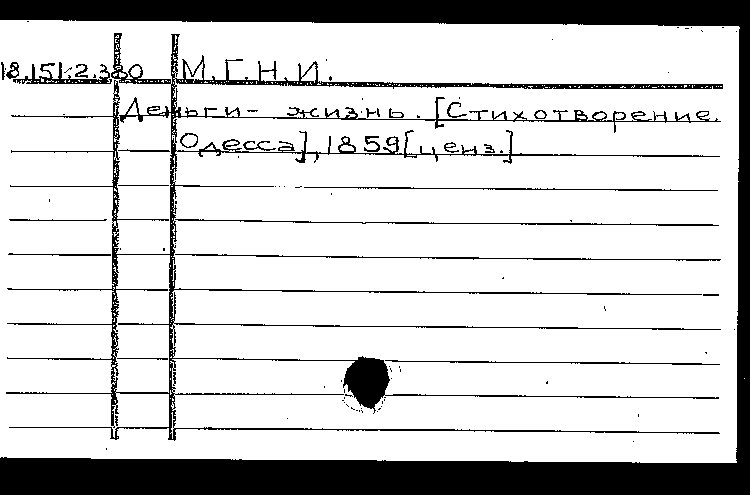 18.151.2.380 М.Г.Н.И.
Деньги - жизнь. [Стихотворение.
Одесса], 1859 [ценз.]